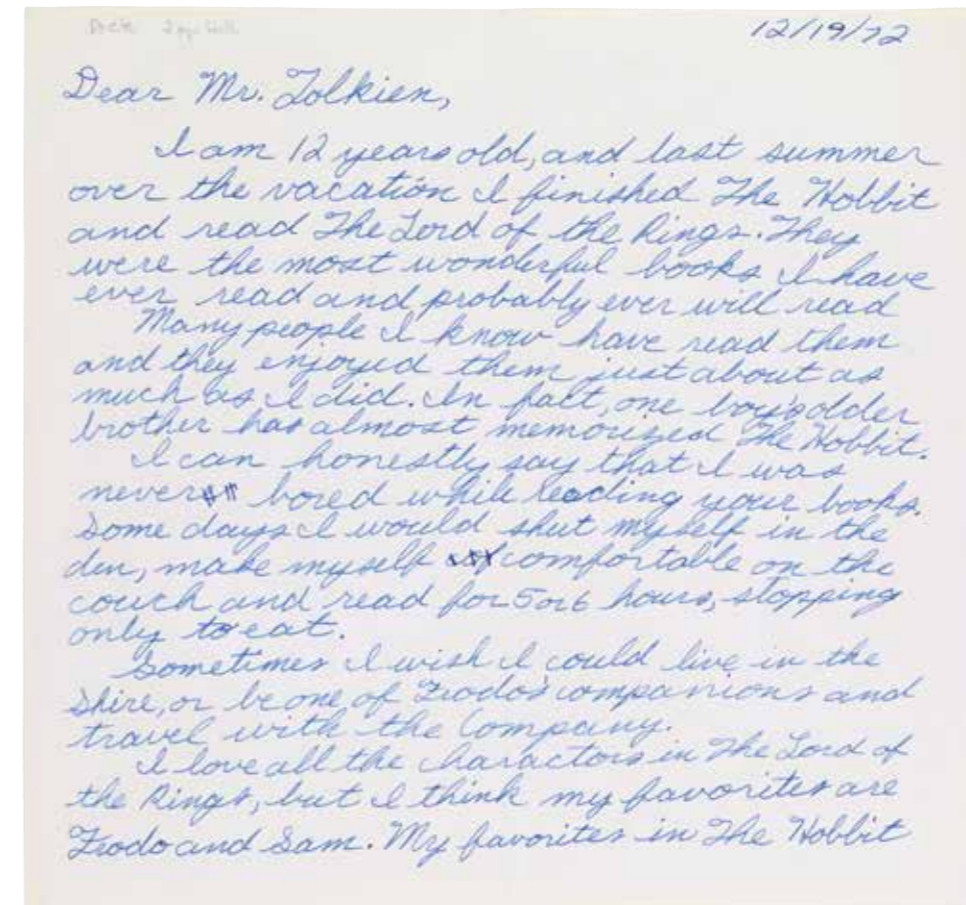 12/19/72
Dear Mr. Tolkien,
I am 12 years old, and last summer
over the vacation I finished The Hobbit
and read The Lord of the Rings. They
were the most wonderful books I have
ever read and probably ever will read
Many people I know have read them
and they enjoyed them just about as
much as I did. In fact, one boy's older
brother has almost memorized The Hobbit.
I can honestly say that I was
never bored while reading your books.
Some days I would shut myself in the
den, make myself comfortable on the
couch and read for 5 or 6 hours, stopping
only to eat.
Sometimes I wish I could live in the
Shire, or be one of Frodo's companions and
travel with the Company.
I love all the charactors in The Lord of
the Rings, but I think my favorites are
Frodo and Sam. My favorites in The Hobbit